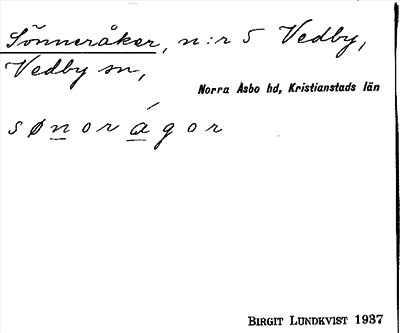 Sönneråker, n:r 5 Vedby,
Vedby sn,
Norra Åsbo hd, Kristianstads län
sønorágor
BIRGIT LUNDKVIST 1937